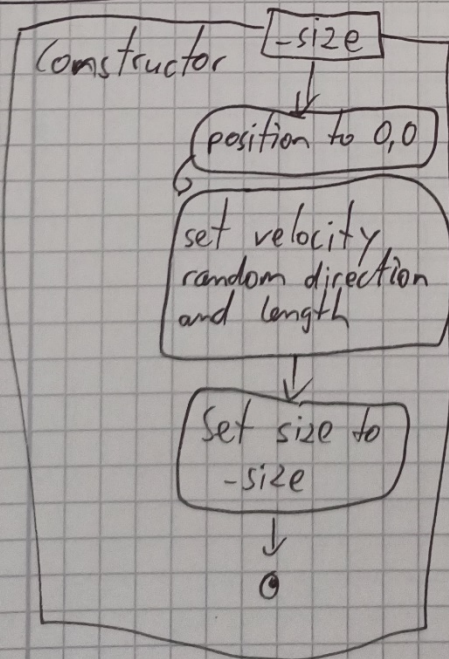 Constructor
-size
position to 0,0
set velocity
random direction
and length
Set size to
-size